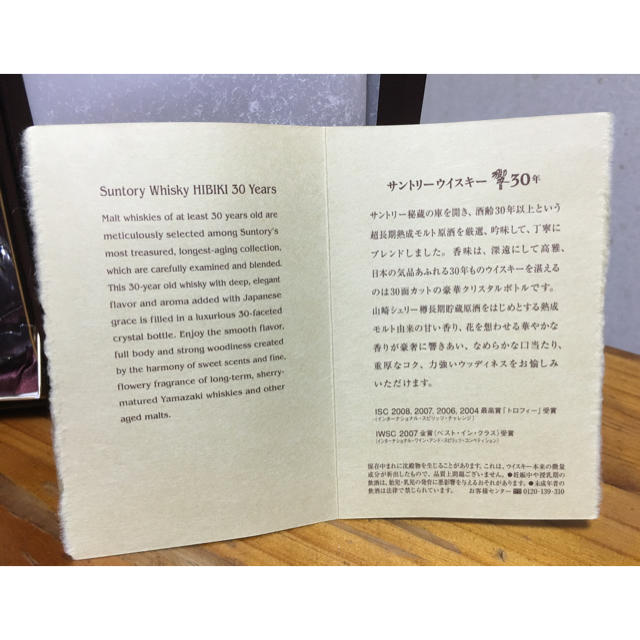 Suntory Whisky HIBIKI 30 Years
Malt whiskies of at least 30 years old are
meticulously selected among Suntory's
most treasured, longest-aging collection,
which are carefully examined and blended.
This 30-year old whisky with deep, elegant
flavor and aroma added with Japanese
grace is filled in a luxurious 30-faceted
crystal bottle. Enjoy the smooth flavor,
full body and strong woodiness created
by the harmony of sweet scents and fine,
flowery fragrance of long-term, sherry-
matured Yamazaki whiskies and other
aged malts.
サントリーウイスキー 響30年
サントリー秘蔵の庫を開き、酒齢30年以上という
超長期熟成モルト原酒を厳選、吟味して、丁寧に
ブレンドしました。香味は、深遠にして高雅、
日本の気品あふれる30年ものウイスキーを湛える
のは30面カットの豪華クリスタルボトルです。
山崎シェリー樽長期貯蔵原酒をはじめとする熟成
モルト由来の甘い香り、花を想わせる華やかな
香りが豪奢に響きあい、なめらかな口当たり、
重厚なコク、力強いウッディネスをお愉しみ
いただけます。
ISC 2008, 2007, 2006, 2004 最高賞「トロフィー」受賞
(インターナショナル・スピリッツ・チャレンジ)
IWSC 2007 金賞〈ベスト・イン・クラス〉受賞
(インターナショナル・ワイン・アンド・スピリッツ・コンペティション)
保存中まれに沈殿物を生じることがあります。これは、ウイスキー本来の微量
成分が析出したもので、品質上問題ございません。●妊娠中や授乳期の
飲酒は、胎児・乳児の発育に悪影響を与えるおそれがあります。●未成年者の
飲酒は法律で禁じられています。 お客様センター 0120-139-310